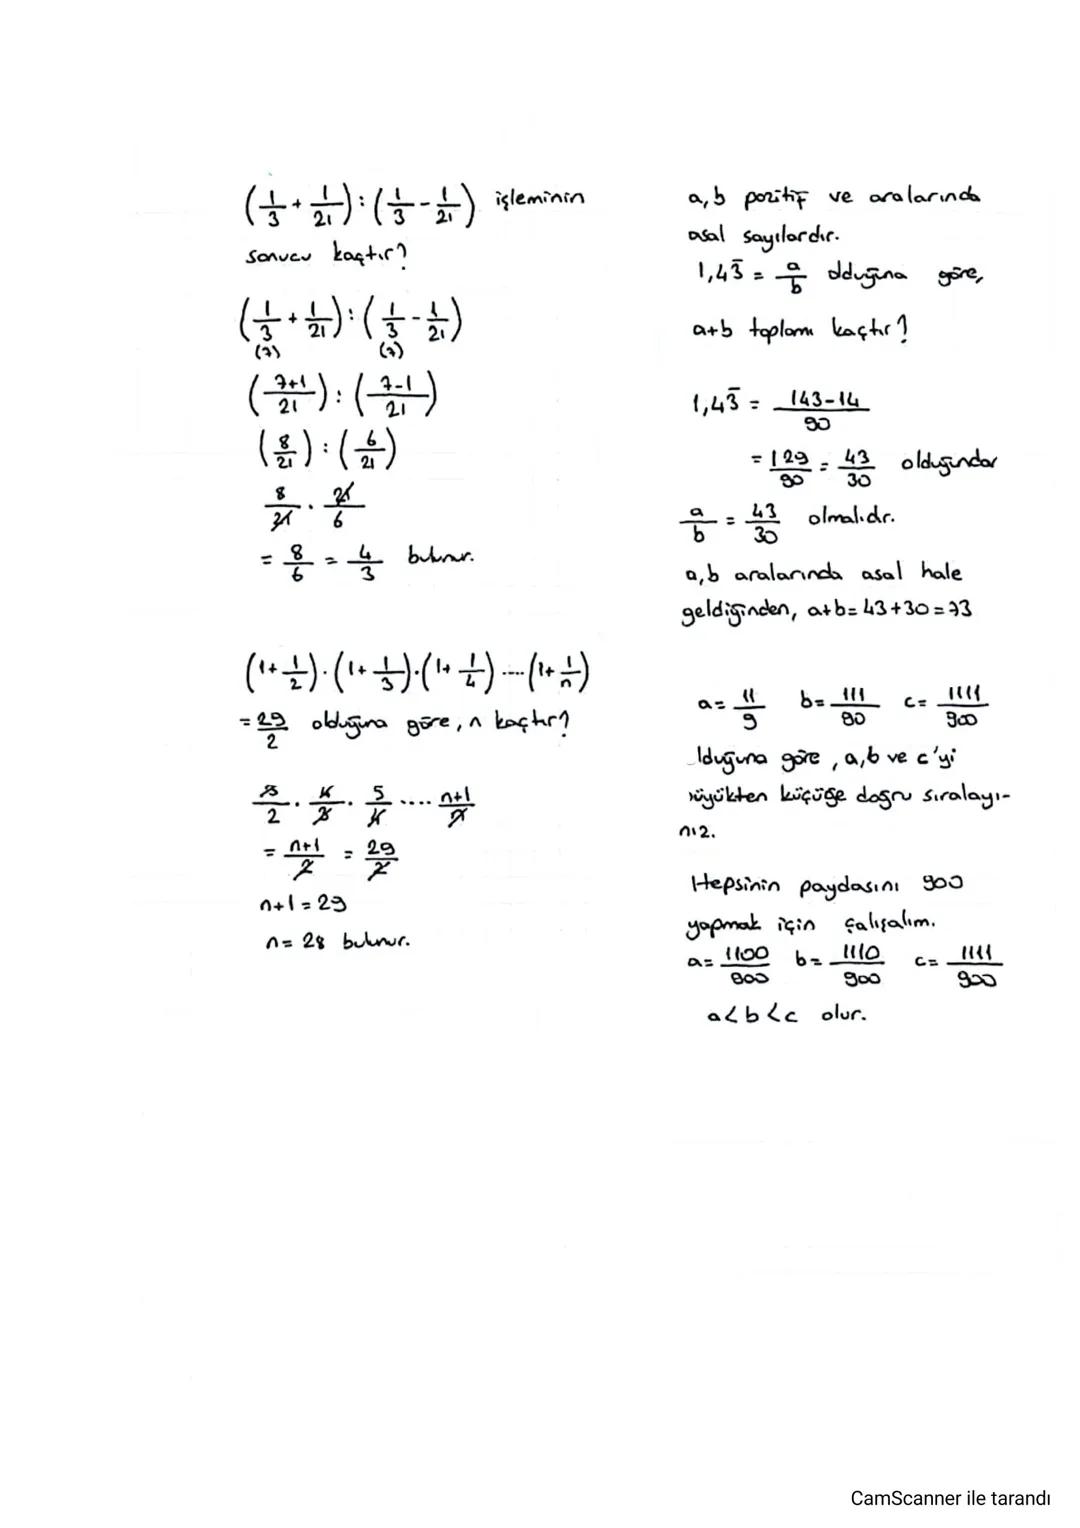 (1/3 + 1/21) : (1/3 - 1/21) işleminin
sonucu kaçtır?
(1/3 + 1/21) : (1/3 - 1/21)
(7) (7)
(7+1/21) : (7-1/21)
(8/21) : (6/21)
8/21 . 21/6
= 8/6 = 4/3 bulunur.
(1+1/2).(1+1/3).(1+1/4)....(1+1/n)
= 29/2 olduğuna göre, n kaçtır?
3/2 . 4/3 . 5/4 .... n+1/n
= n+1/2 = 29/2
n+1 = 29
n = 28 bulunur.
a,b pozitif ve aralarında
asal sayılardır.
1,43̅ = a/b olduğuna göre,
a+b toplamı kaçtır?
1,43̅ = 143-14/90
= 129/90 = 43/30 olduğundan
a/b = 43/30 olmalıdır.
a,b aralarında asal hale
geldiğinden, a+b = 43+30 = 73
a = 11/9 b = 111/90 c = 1111/900
lduğuna göre, a,b ve c'yi
üyükten küçüğe doğru sıralayı-
nız.
Hepsinin paydasını 900
yapmak için çalışalım.
a = 1100/900 b = 1110/900 c = 1111/900
a<b<c olur.
CamScanner ile tarandı